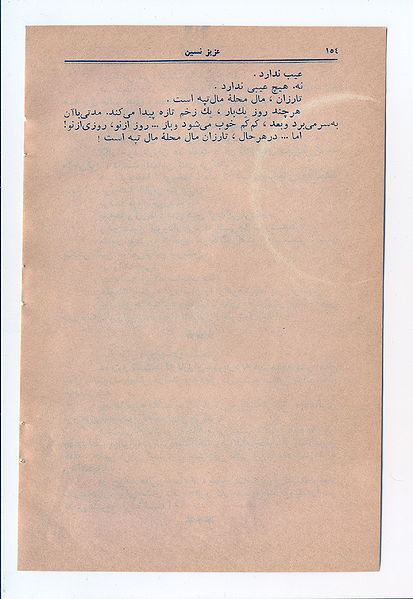 ۱۵٤ عزیز نسین
عیب ندارد .
نه. هیچ عیبی ندارد .
تارزان ، مال محلهٔ مال‌تپه است .
هرچند روز یك‌بار ، یك زخم تازه پیدا می‌کند. مدتی‌باآن
به‌سرمی‌برد وبعد ، کم‌کم خوب می‌شود وباز ... روز ازنو، روزی‌ازنو!
اما ... درهرحال ، تارزان مال محلهٔ مال تپه است !